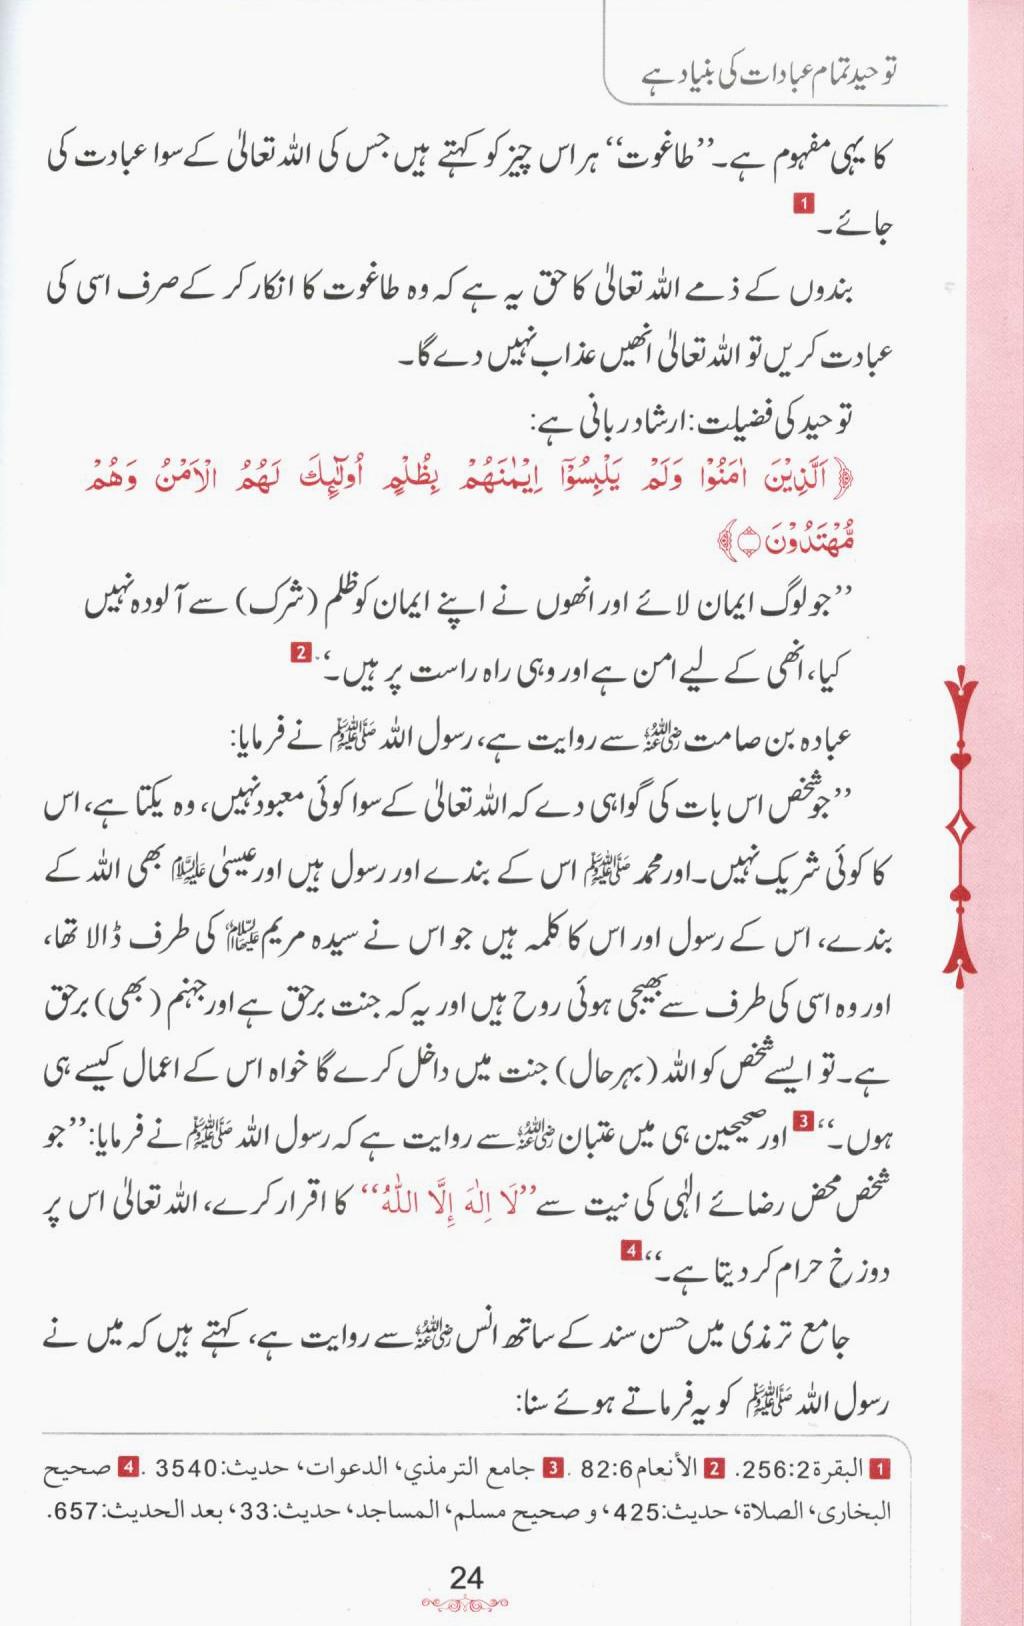 توحید تمام عبادات کی بنیاد ہے
کا یہی مفہوم ہے۔ ’’طاغوت‘‘ ہر اس چیز کو کہتے ہیں جس کی اللہ تعالیٰ کے سوا عبادت کی
جائے۔ 1
بندوں کے ذمے اللہ تعالیٰ کا حق یہ ہے کہ وہ طاغوت کا انکار کر کے صرف اسی کی
عبادت کریں تو اللہ تعالیٰ انھیں عذاب نہیں دے گا۔
توحید کی فضیلت: ارشاد ربانی ہے:
﴿اَلَّذِیْنَ اٰمَنُوْا وَلَمْ یَلْبِسُوْۤا اِیْمٰنَهُمْ بِظُلْمٍ اُولٰٓىِٕكَ لَهُمُ الْاَمْنُ وَهُمْ
مُّهْتَدُوْنَ ۝﴾
’’جو لوگ ایمان لائے اور انھوں نے اپنے ایمان کو ظلم (شرک) سے آلودہ نہیں
کیا، انھی کے لیے امن ہے اور وہی راہ راست پر ہیں۔‘‘ 2
عبادہ بن صامت رضی اللہ عنہ سے روایت ہے، رسول اللہ ﷺ نے فرمایا:
’’جو شخص اس بات کی گواہی دے کہ اللہ تعالیٰ کے سوا کوئی معبود نہیں، وہ یکتا ہے، اس
کا کوئی شریک نہیں۔ اور محمد ﷺ اس کے بندے اور رسول ہیں اور عیسیٰ علیہ السلام بھی اللہ کے
بندے، اس کے رسول اور اس کا کلمہ ہیں جو اس نے سیدہ مریم علیہا السلام کی طرف ڈالا تھا،
اور وہ اسی کی طرف سے بھیجی ہوئی روح ہیں اور یہ کہ جنت برحق ہے اور جہنم (بھی) برحق
ہے۔ تو ایسے شخص کو اللہ (بہرحال) جنت میں داخل کرے گا خواہ اس کے اعمال کیسے ہی
ہوں۔‘‘ 3 اور صحیحین ہی میں عتبان رضی اللہ عنہ سے روایت ہے کہ رسول اللہ ﷺ نے فرمایا: ’’جو
شخص محض رضائے الٰہی کی نیت سے ’’لَا اِلٰهَ إِلَّا اللّٰهُ‘‘ کا اقرار کرے، اللہ تعالیٰ اس پر
دوزخ حرام کر دیتا ہے۔‘‘ 4
جامع ترمذی میں حسن سند کے ساتھ انس رضی اللہ عنہ سے روایت ہے، کہتے ہیں کہ میں نے
رسول اللہ ﷺ کو یہ فرماتے ہوئے سنا:
1 البقرة 256:2. 2 الأنعام 82:6. 3 جامع الترمذي، الدعوات، حديث: 3540. 4 صحيح
البخاری، الصلاة، حديث: 425، و صحيح مسلم، المساجد، حديث: 33، بعد الحديث: 657.
24